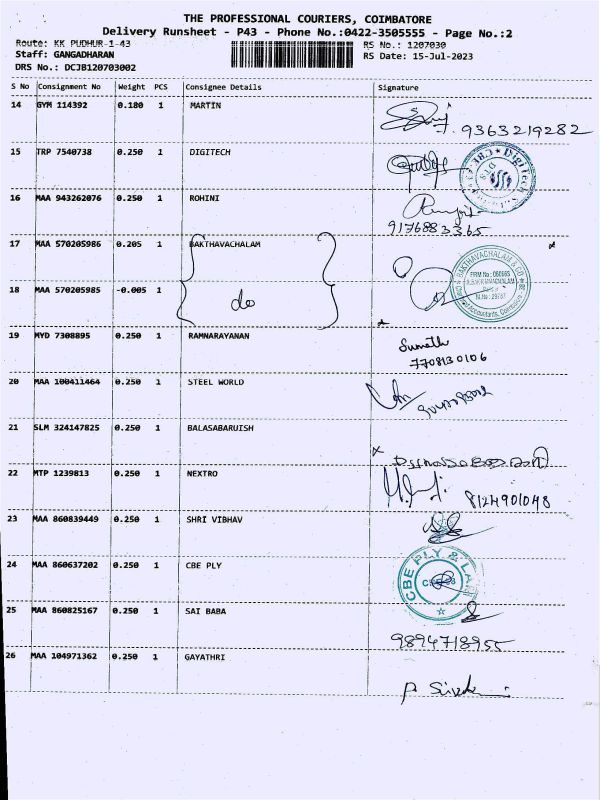 THE PROFESSIONAL COURIERS, COIMBATORE
Delivery Runsheet - P43 - Phone No.:0422-3505555 - Page No.:2
Route: KK PUDHUR-1-43 RS No.: 1207030
Staff: GANGADHARAN RS Date: 15-Jul-2023
DRS No.: DCJB120703002
S No Consignment No Weight PCS Consignee Details Signature
14 GYM 114392 0.180 1 MARTIN
9363219282
15 TRP 7540738 0.250 1 DIGITECH
16 MAA 943262076 0.250 1 ROHINI
9176883365
17 MAA 570205986 0.205 1 BAKTHAVACHALAM
BAKTHAVACHALAM & CO
18 MAA 570205985 -0.005 1 do
19 MYD 7308895 0.250 1 RAMNARAYANAN
Sumathi
7708130106
20 MAA 100411464 0.250 1 STEEL WORLD
21 SLM 324147825 0.250 1 BALASABARUISH
22 MTP 1239813 0.250 1 NEXTRO
8124901048
23 MAA 860839449 0.250 1 SHRI VIBHAV
24 MAA 860637202 0.250 1 CBE PLY
CBE PLY &
25 MAA 860825167 0.250 1 SAI BABA
9894718955
26 MAA 104971362 0.250 1 GAYATHRI